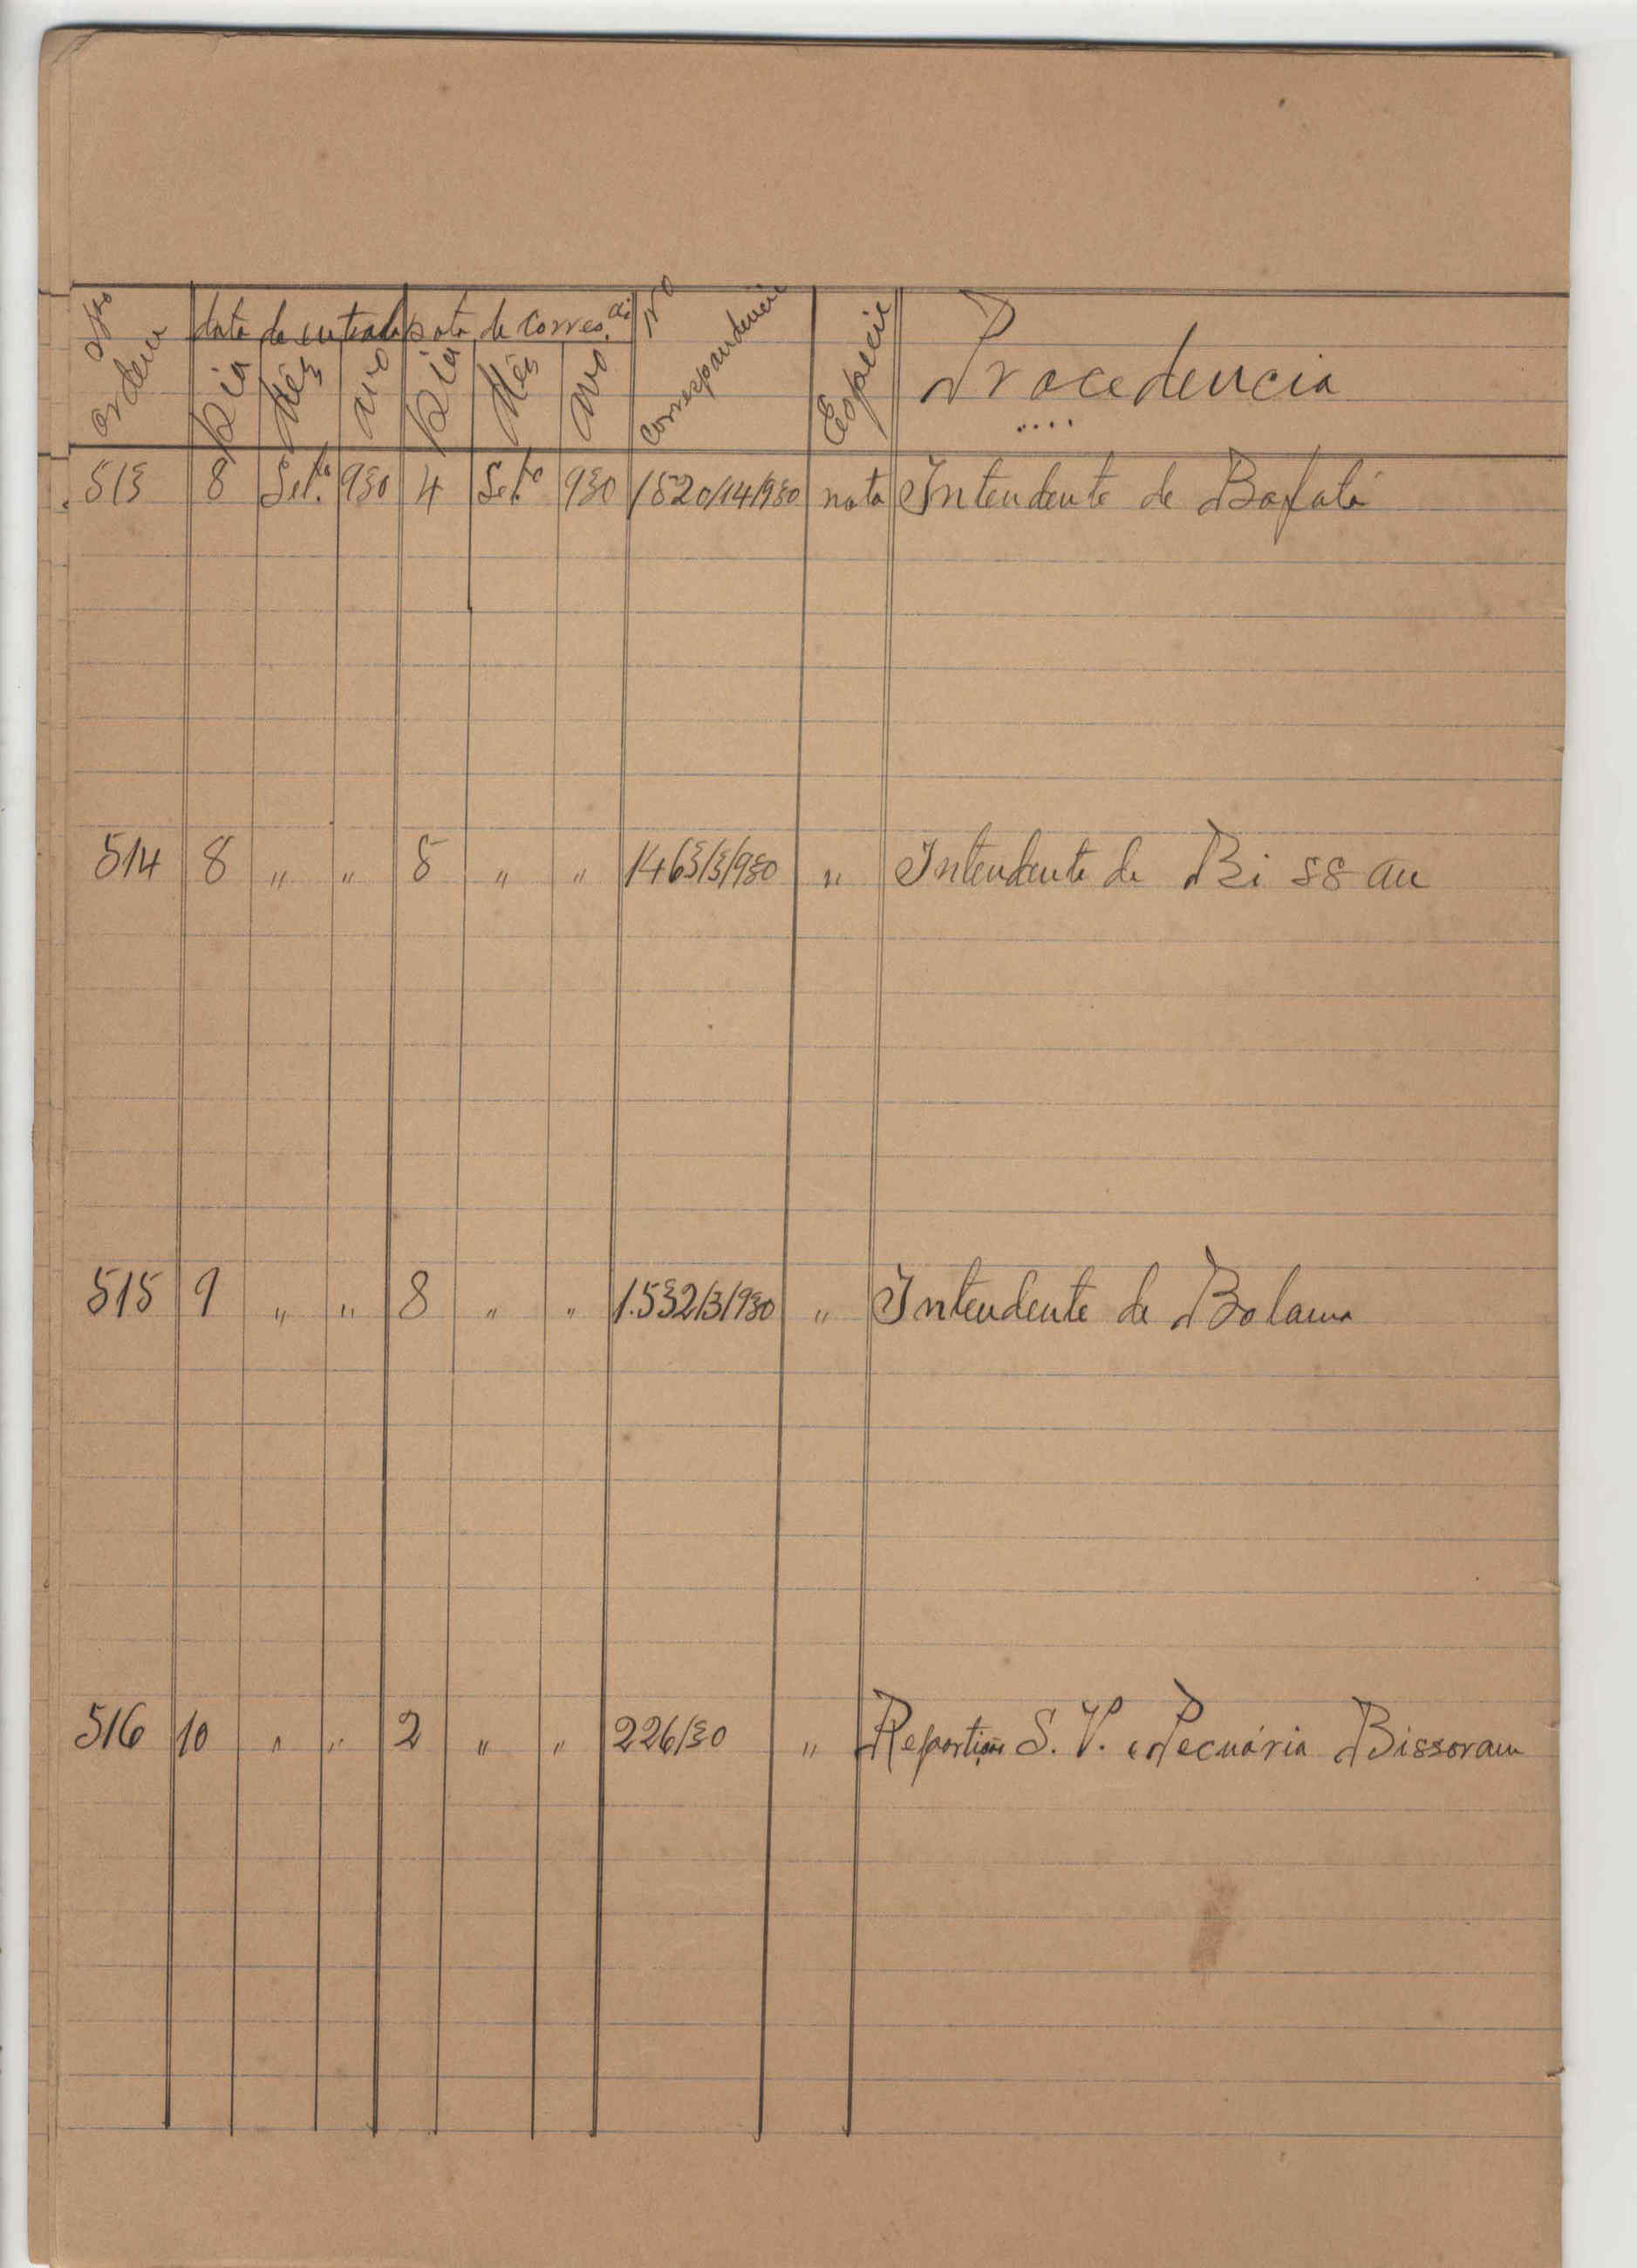 Nº ordem data de entrada Data de corres.ci Nº correspondencia Especie Procedencia
Dia Mês ano Dia Mês ano
513 8 Set.º 930 4 Set.º 930 1520/14/930 nota Intendente de Bafatá
514 8 " " 5 " " 1463/3/930 " Intendente de Bissau
515 9 " " 8 " " 1.532/3/930 " Intendente de Bolama
516 10 " " 2 " " 226/30 " S. V. Pecuária Bissoram